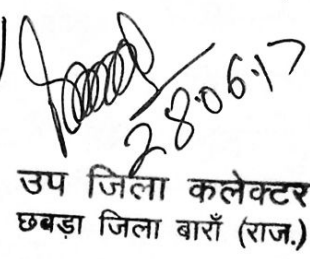 28.06.17
उप जिला कलेक्टर
छबड़ा जिला बाराँ (राज.)